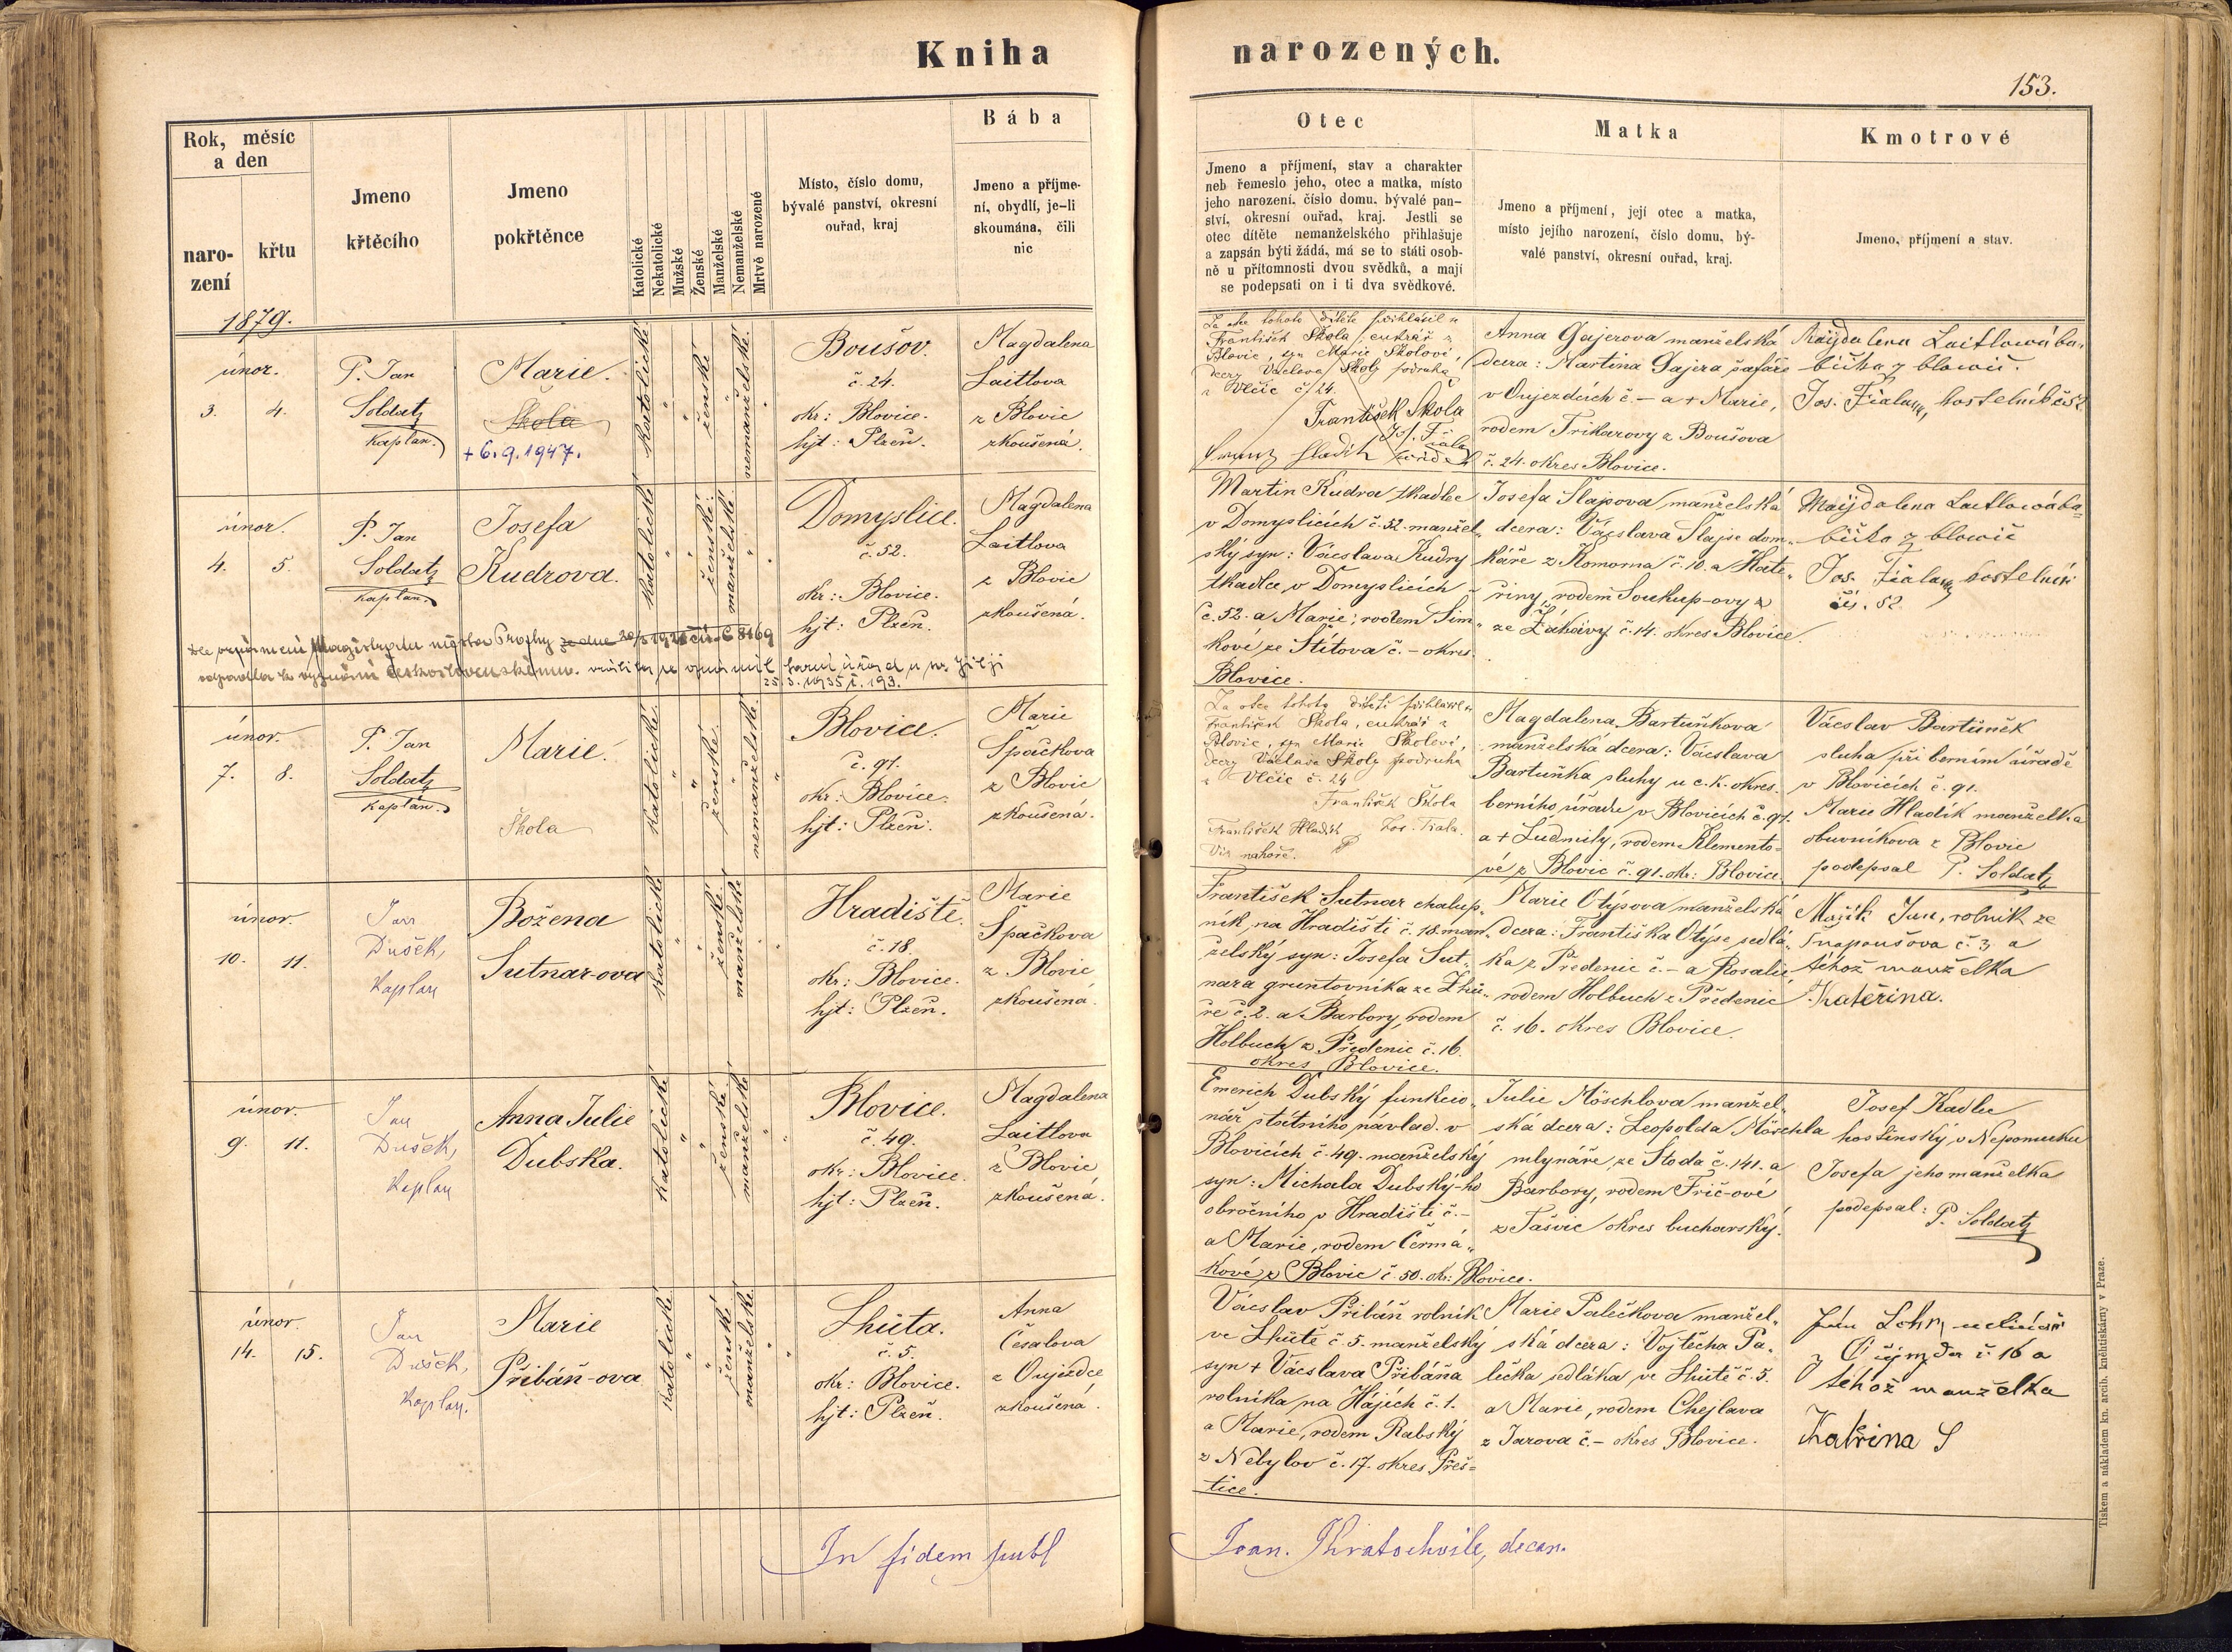 Kniha
narozených.
153.
Rok, měsíc
a den
naro-
zení
křtu
Jmeno
křtěcího
Jmeno
pokřtěnce
Katolické
Nekatolické
Mužské
Ženské
Manželské
Nemanželské
Mrtvě narozené
Místo, číslo domu,
bývalé panství, okresní
ouřad, kraj
Bába
Jmeno a příjme-
ní, obydlí, je-li
skoumána, čili
nic
Otec
Jmeno a příjmení, stav a charakter
neb řemeslo jeho, otec a matka, místo
jeho narození, číslo domu, bývalé pan-
ství, okresní ouřad, kraj. Jestli se
otec dítěte nemanželského přihlašuje
a zapsán býti žádá, má se to státi osob-
ně u přítomnosti dvou svědků, a mají
se podepsati on i ti dva svědkové.
Matka
Jmeno a příjmení, její otec a matka,
místo jejího narození, číslo domu, bý-
valé panství, okresní ouřad, kraj.
Kmotrové
Jmeno, příjmení a stav.
1879.
únor.
3. 4.
P. Jan
Soldatz
Kaplan.
Marie.
Škola
+ 6.9.1947.
Katolické
ženské
nemanželské.
Boušov.
č. 24.
okr: Blovice.
hjt: Plzeň.
Magdalena
Laitlova
z Blovic
zkoušená.
Za otce tohoto dítěte přihlásil se
František Škola, cukrář z
Blovic, syn Marie Školovi,
dcery Václava Školy podruha
z Vlčic č. 24.
František Škola
Jos. Fiala
Anna Gajerova manželská
dcera: Martina Gajera šafáře
v Oujezdcích č. – a + Marie,
rodem Trikarovy z Boušova
č. 24. okres Blovice.
Majdalena Laitlowá ba-
bička z blowic.
Jos. Fiala, kostelník č. 52
únor.
4. 5.
P. Jan
Soldatz
Kaplan.
Josefa
Kudrova.
Katolické
ženské.
manželské.
Domyslice.
č. 52.
okr: Blovice.
hjt: Plzeň.
Magdalena
Laitlova
z Blovic
zkoušená.
Martin Kudra tkadlec
v Domyslicích č. 52. manžel-
ský syn: Václava Kudry
tkadlce v Domyslicích
č. 52. a Marie, rodem Šim-
kové ze Štítova č. – okres
Blovice.
Josefa Šlajsova manželská
dcera: Václava Šlajse dom-
káře z Komorna č. 10. a Kate-
řiny, rodem Soukup-ovy z
ze Žákavy č. 14. okres Blovice.
Majdalena Laitlowá ba-
bička z blowic
Jos. Fiala, kostelník
čís. 52.
25.3.1935 č. 193.
únor.
7. 8.
P. Jan
Soldatz
Kaplan.
Marie.
Škola
Katolické.
ženské.
nemanželské.
Blovice.
č. 91.
okr: Blovice.
hjt: Plzeň.
Marie
Špačkova
z Blovic
zkoušená.
Za otce tohoto dítěte přihlásil se
František Škola, cukrář z
Blovic, syn Marie Školovi,
dcery Václava Školy podruha
z Vlčic č. 24
František Škola
František Hladík Jos. Fiala.
Viz nahoře.
Magdalena Bartuňková
manželská dcera: Václava
Bartuňka sluhy u c. k. okres.
berního úřadu v Blovicích č. 91.
a + Ludmily, rodem Klemento-
vé z Blovic č. 91. okr: Blovice.
Václav Bartůněk
sluha při berním úřadě
v Blovicích č. 91.
Marie Hladík manželka
obuvníkova z Blovic
podepsal P. Soldatz
únor.
10. 11.
Jan
Dušek,
Kaplan
Božena
Sutnar-ova
Katolické
ženské.
manželské
Hradiště.
č. 18.
okr: Blovice.
hjt: Plzeň.
Marie
Špačkova
z Blovic
zkoušená.
František Sutnar chalup-
ník na Hradišti č. 18. man-
želský syn: Josefa Sut-
nara gruntovníka ze Zhů-
ře č. 2. a Barbory, rodem
Holbuch z Předenic č. 16.
okres Blovice.
Marie Otýsova manželská
dcera: Františka Otýse sedlá-
ka z Předenic č. – a Rosalie
rodem Holbuch z Předenic
č. 16. okres Blovice.
Mařík Jan, rolník ze
Snopoušova č. 3 a
téhož manželka
Kateřina.
únor.
9. 11.
Jan
Dušek,
Kaplan
Anna Julie
Dubska.
Katolické
ženské.
manželské
Blovice.
č. 49.
okr: Blovice.
hjt: Plzeň.
Magdalena
Laitlova
z Blovic
zkoušená.
Emerich Dubský funkcio-
nář státního návlad. v
Blovicích č. 49. manželský
syn: Michala Dubský-ho
obročního v Hradišti č. –
a Marie, rodem Čermá-
kové z Blovic č. 50. okr: Blovice.
Julie Möschlova manžel-
ská dcera: Leopolda Möschla
mlynáře, ze Stoda č. 141. a
Barbory, rodem Frič-ové
z Tašvic okres bucharský.
Josef Kadlec
hostinský v Nepomuku
Josefa jeho manželka
podepsal: P. Soldatz
únor.
14. 15.
Jan
Dušek,
Kaplan.
Marie
Přibáň-ova
Katolické
ženské
manželské.
Lhůta.
č. 5.
okr: Blovice.
hjt: Plzeň.
Anna
Česalova
z Oujezdce
zkoušená.
Václav Přibáň rolník
ve Lhůtě č. 5. manželský
syn + Václava Přibáňa
rolníka na Hájích č. 1.
a Marie, rodem Rabský
z Nebylov č. 17. okres Přeš-
tice.
Marie Palečkova manžel-
ská dcera: Vojtěcha Pa-
lečka sedláka ve Lhůtě č. 5.
a Marie, rodem Chejlava
z Jarova č. – okres Blovice.
č. 16 a
téhož manželka
Katřina
In fidem publ
Joan. Kratochvíle, decan.
Tiskem a nákladem kn. arcib. knihtiskárny v Praze.